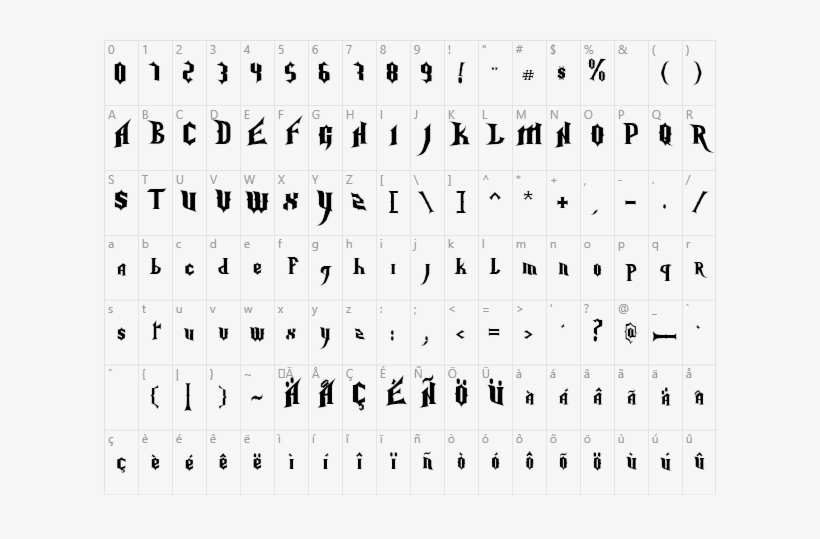 0 1 2 3 4 5 6 7 8 9 ! " # $ % & ( )
0 1 2 3 4 5 6 7 8 9 ! " # $ % ( )
A B C D E F G H I J K L M N O P Q R
A B C D E F G H I J K L M N O P Q R
S T U V W X Y Z [ \ ] ^ * + , - . /
S T U V W X Y Z [ \ ] ^ * + , - . /
a b c d e f g h i j k l m n o p q r
a b c d e f g h i j k l m n o p q r
s t u v w x y z : ; < = > ' ? @ _ `
s t u v w x y z : ; < = > ' ? @ _ `
{ | } ~ Ä Å Ç É Ñ Ö Ü à á â ã ä å
{ | } ~ Ä Å Ç É Ñ Ö Ü à á â ã ä å
ç è é ê ë ì í î ï ñ ò ó ô õ ö ù ú û
ç è é ê ë ì í î ï ñ ò ó ô õ ö ù ú û